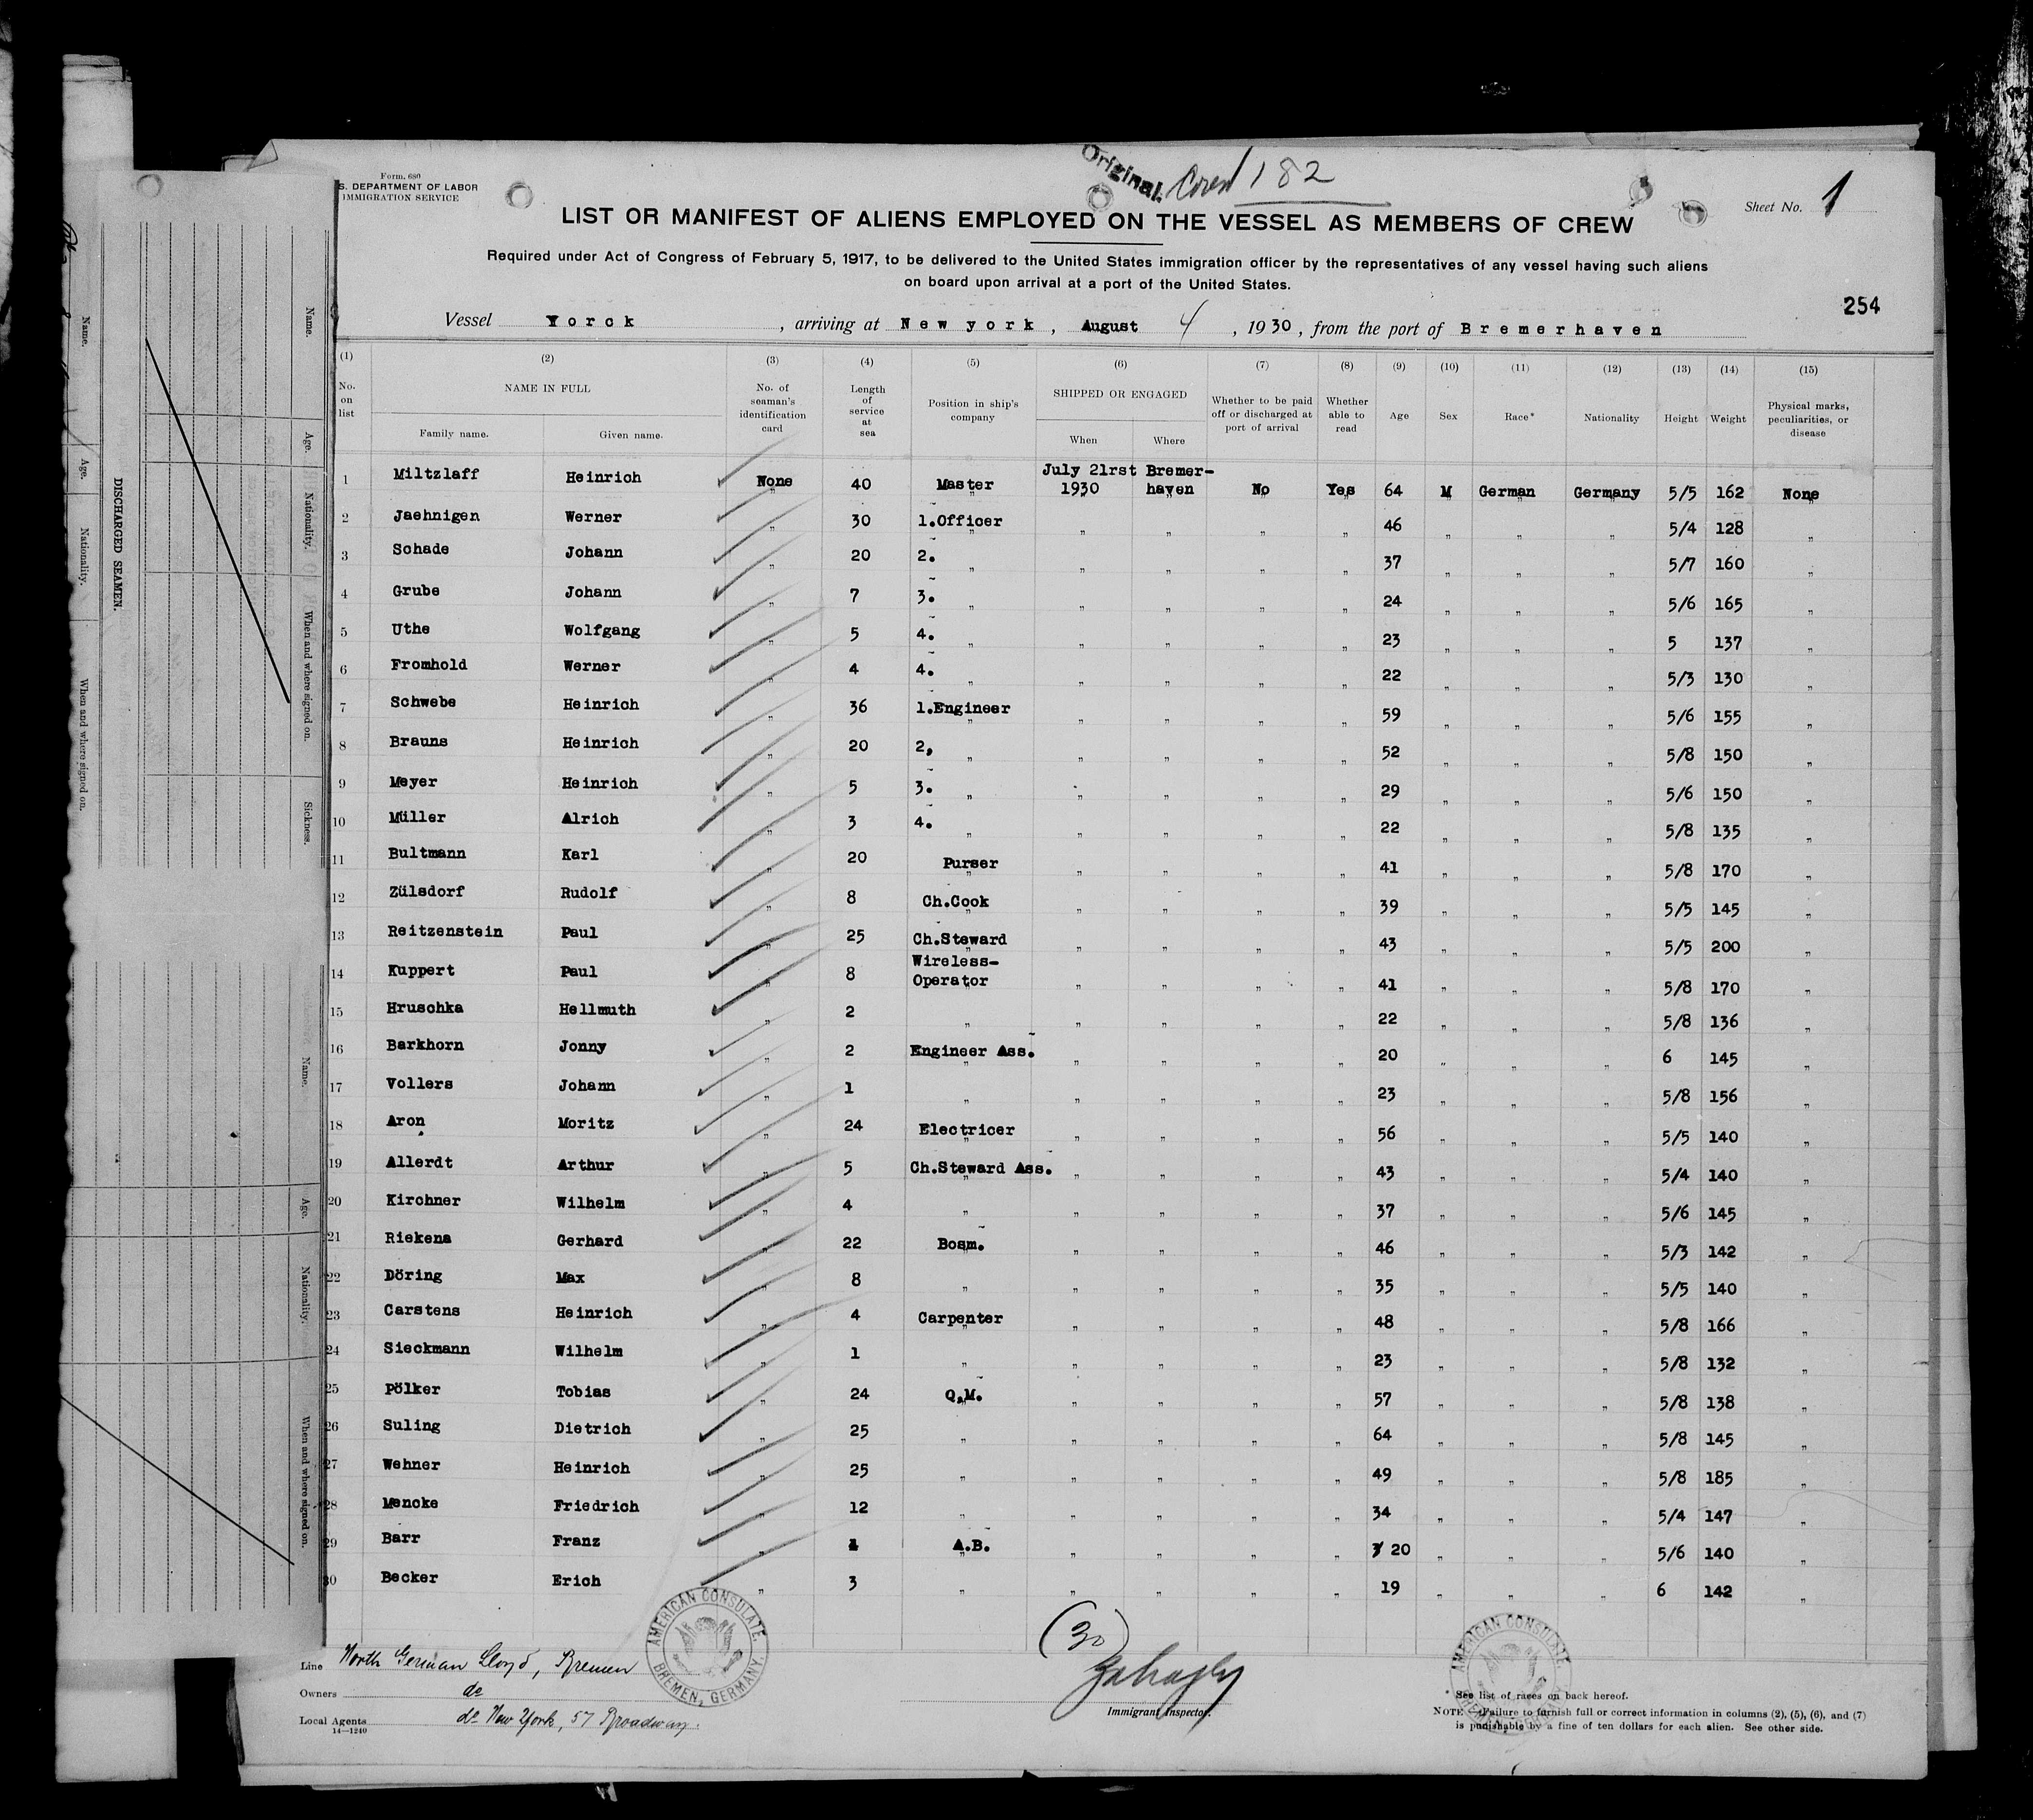 Original. Crew 182
Form 680
S. DEPARTMENT OF LABOR
IMMIGRATION SERVICE
Sheet No. 1
LIST OR MANIFEST OF ALIENS EMPLOYED ON THE VESSEL AS MEMBERS OF CREW
Required under Act of Congress of February 5, 1917, to be delivered to the United States immigration officer by the representatives of any vessel having such aliens
on board upon arrival at a port of the United States.
254
Vessel Yorck, arriving at New york, August 4, 1930, from the port of Bremerhaven
(1) (2) (3) (4) (5) (6) (7) (8) (9) (10) (11) (12) (13) (14) (15)
No. on list NAME IN FULL Family name. Given name. No. of seaman's identification card Length of service at sea Position in ship's company SHIPPED OR ENGAGED When Where Whether to be paid off or discharged at port of arrival Whether able to read Age Sex Race* Nationality Height Weight Physical marks, peculiarities, or disease
1 Miltzlaff Heinrich None 40 Master July 21rst 1930 Bremer-haven No Yes 64 M German Germany 5/5 162 None
2 Jaehnigen Werner " 30 1.Officer " " " " 46 " " " 5/4 128 "
3 Schade Johann " 20 2. " " " " " 37 " " " 5/7 160 "
4 Grube Johann " 7 3. " " " " " 24 " " " 5/6 165 "
5 Uthe Wolfgang " 5 4. " " " " " 23 " " " 5 137 "
6 Fromhold Werner " 4 4. " " " " " 22 " " " 5/3 130 "
7 Schwebe Heinrich " 36 1.Engineer " " " " 59 " " " 5/6 155 "
8 Brauns Heinrich " 20 2, " " " " " 52 " " " 5/8 150 "
9 Meyer Heinrich " 5 3. " " " " " 29 " " " 5/6 150 "
10 Müller Alrich " 3 4. " " " " " 22 " " " 5/8 135 "
11 Bultmann Karl " 20 Purser " " " " 41 " " " 5/8 170 "
12 Zülsdorf Rudolf " 8 Ch.Cook " " " " 39 " " " 5/5 145 "
13 Reitzenstein Paul " 25 Ch.Steward " " " " 43 " " " 5/5 200 "
14 Kuppert Paul " 8 Wireless-Operator " " " " 41 " " " 5/8 170 "
15 Hruschka Hellmuth " 2 " " " " " 22 " " " 5/8 136 "
16 Barkhorn Jonny " 2 Engineer Ass. " " " " 20 " " " 6 145 "
17 Vollers Johann " 1 " " " " " 23 " " " 5/8 156 "
18 Aron Moritz " 24 Electricer " " " " 56 " " " 5/5 140 "
19 Allerdt Arthur " 5 Ch.Steward Ass. " " " " 43 " " " 5/4 140 "
20 Kirchner Wilhelm " 4 " " " " " 37 " " " 5/6 145 "
21 Riekena Gerhard " 22 Bosm. " " " " 46 " " " 5/3 142 "
22 Döring Max " 8 " " " " " 35 " " " 5/5 140 "
23 Carstens Heinrich " 4 Carpenter " " " " 48 " " " 5/8 166 "
24 Sieckmann Wilhelm " 1 " " " " " 23 " " " 5/8 132 "
25 Pölker Tobias " 24 Q.M. " " " " 57 " " " 5/8 138 "
26 Suling Dietrich " 25 " " " " " 64 " " " 5/8 145 "
27 Wehner Heinrich " 25 " " " " " 49 " " " 5/8 185 "
28 Mencke Friedrich " 12 " " " " " 34 " " " 5/4 147 "
29 Barr Franz " 1 A.B. " " " " 20 " " " 5/6 140 "
30 Becker Erich " 3 " " " " " 19 " " " 6 142 "
(30)
Line North German Lloyd, Bremen
Owners do
Local Agents do New York, 57 Broadway.
14—1240
AMERICAN CONSULATE. BREMEN, GERMANY.
Immigrant Inspector.
AMERICAN CONSULATE. BREMEN, GERMANY.
* See list of races on back hereof.
NOTE.—Failure to furnish full or correct information in columns (2), (5), (6), and (7)
is punishable by a fine of ten dollars for each alien. See other side.
DISCHARGED SEAMEN.
Name. Age. Nationality. When and where signed on.
Name. Age. Nationality. When and where signed on. Sickness.
Name. Age. Nationality. When and where signed on.